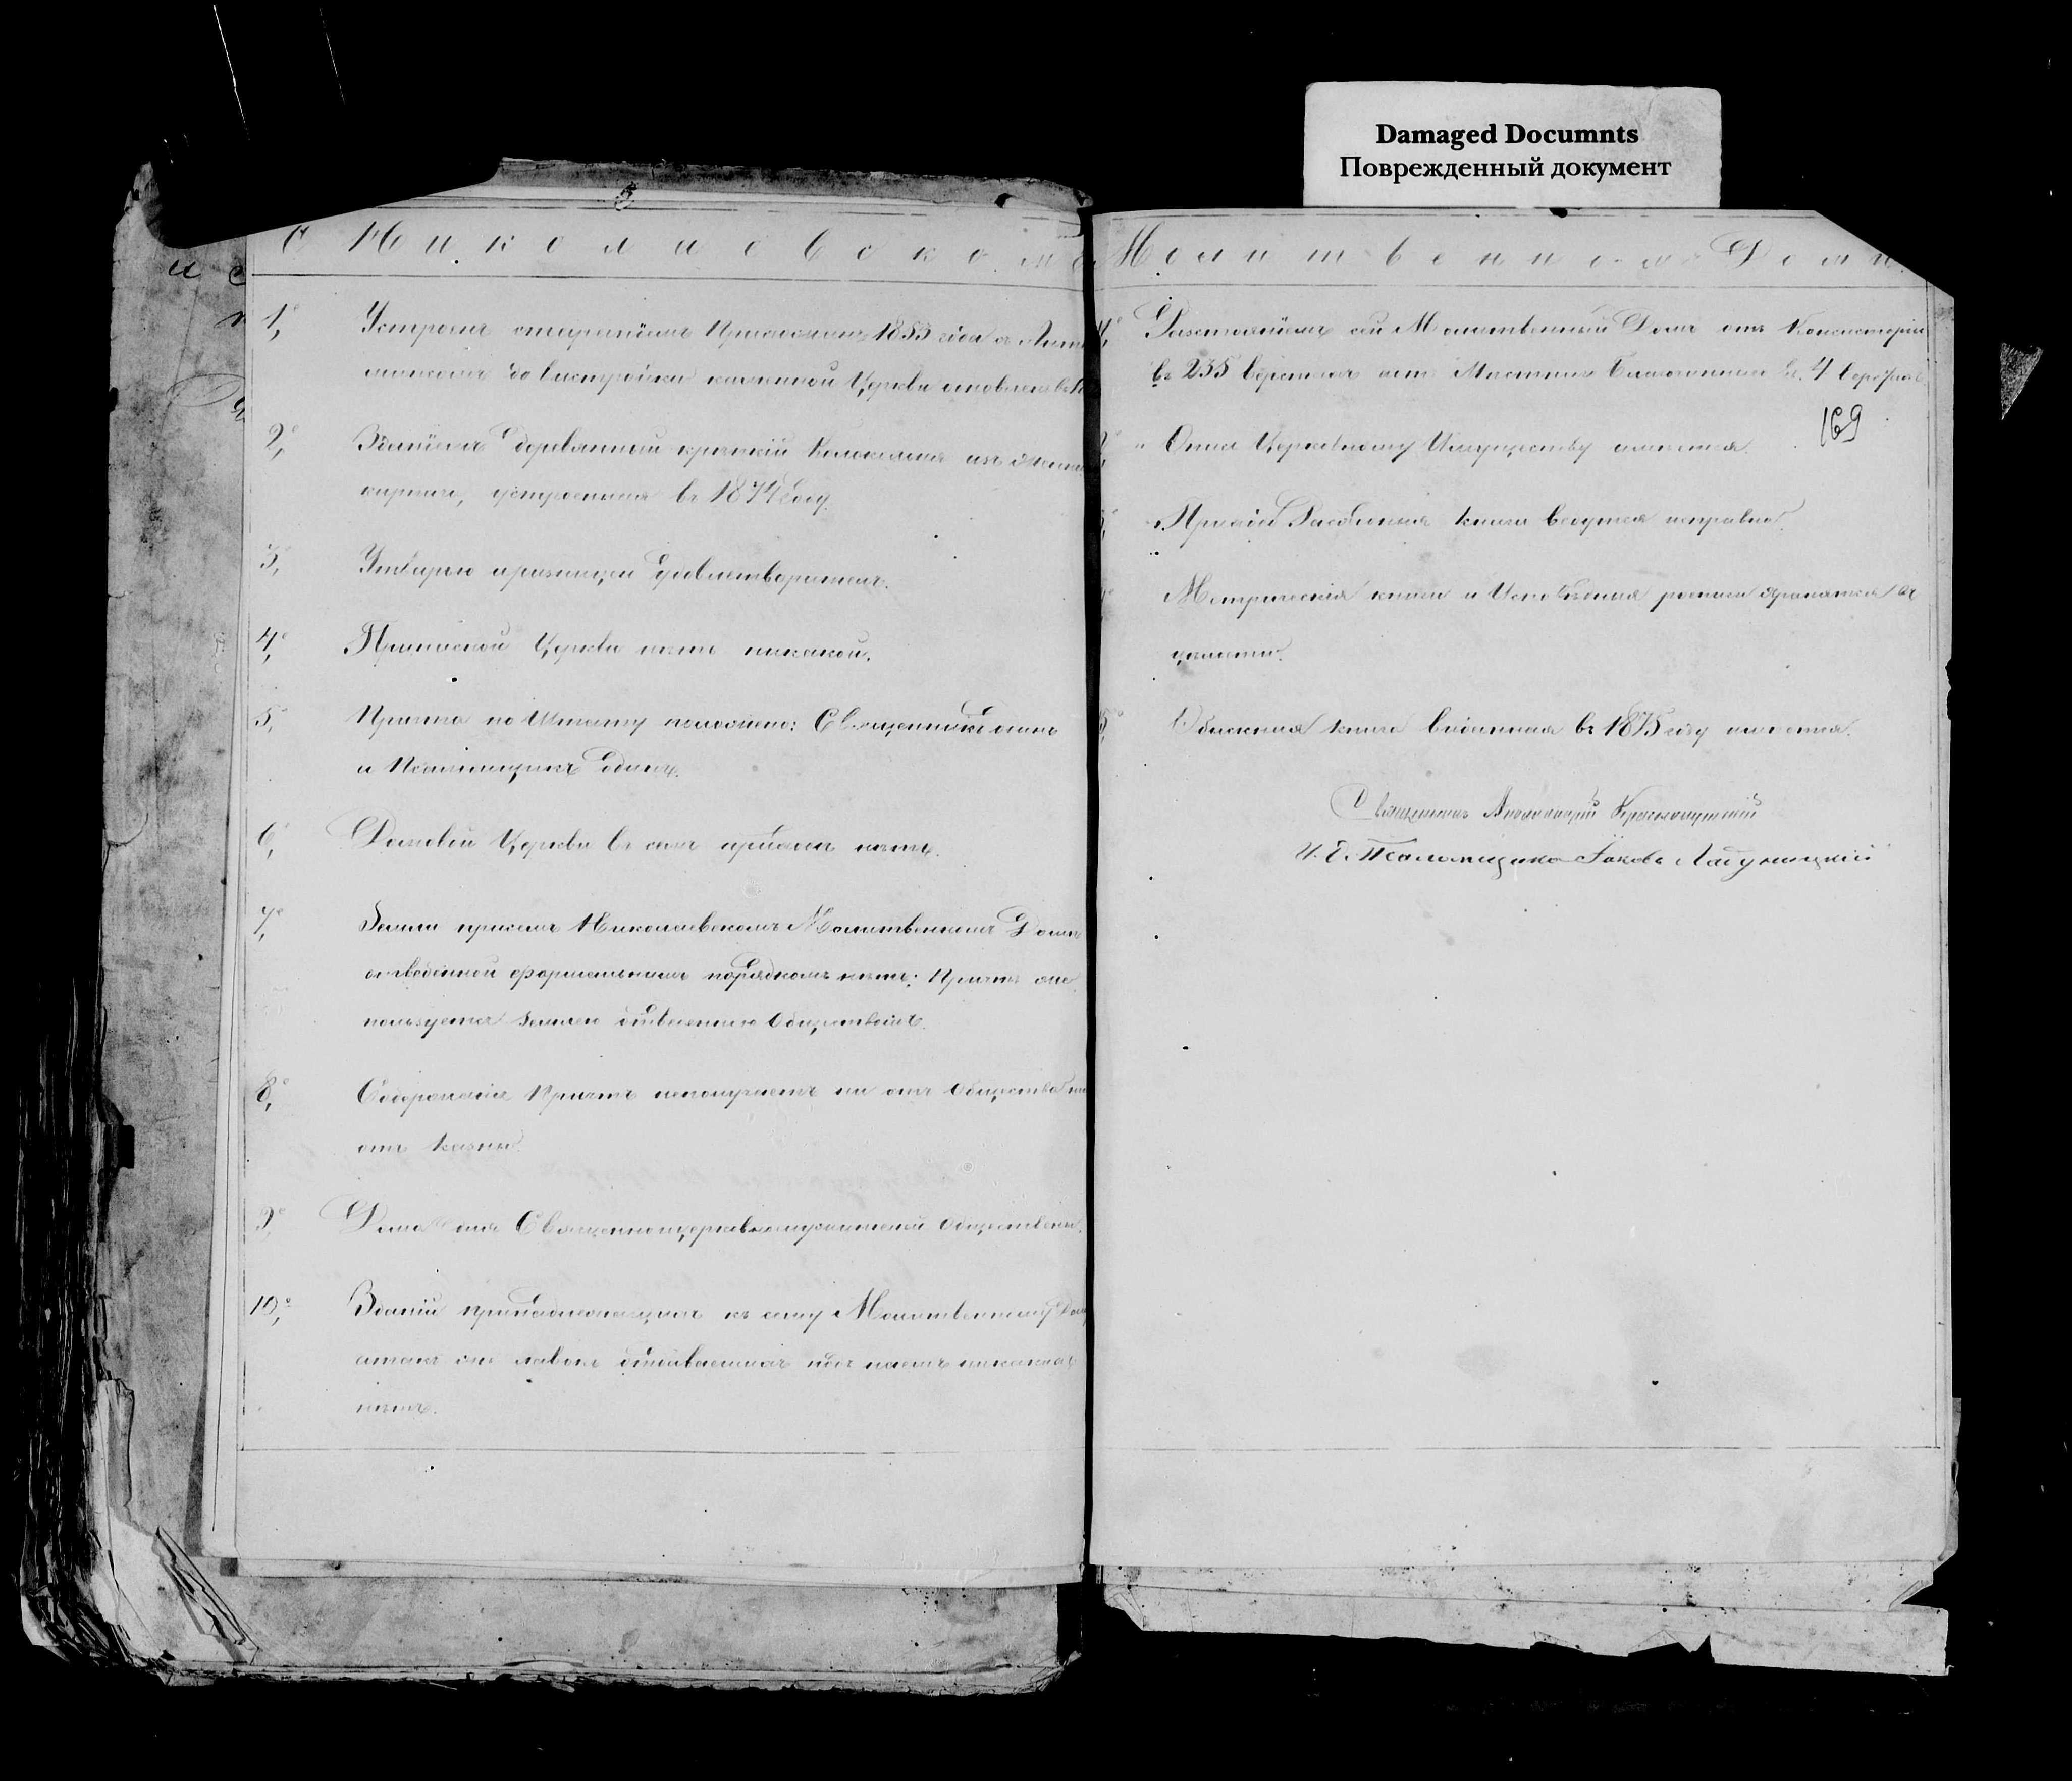 Damaged Documnts
Поврежденный документ
О Николаевскомъ Молитвенномъ Домѣ
1, Устроенъ стараніемъ Прихожанъ 1853 года
до выстройки каменной Церкви
2, Зданіемъ деревянный крѣпкій Колокольня изъ
кирпича, устроенная въ 1874 году.
3, Утварью и ризницей удовлетворителенъ.
4, Приписной Церкви нѣтъ никакой.
5, Причта по Штату положено: Священникъ одинъ
и Псаломщикъ одинъ.
6, Домовой Церкви въ семъ приходѣ нѣтъ.
7, Земли при семъ Николаевскомъ Молитвенномъ Домѣ
отведенной формальнымъ порядкомъ нѣтъ; Причтъ
пользуется землею отведенною Обществомъ.
8, Содержанія Причтъ не получаетъ ни отъ Общества ни
отъ казны.
9, Дома для Священноцерковнослужителей Общественны.
10, Зданій принадлежащихъ къ сему Молитвенному Дому
отдаваемыхъ подъ наемъ никакихъ
нѣтъ.
Разстояніемъ сей Молитвенный Домъ отъ Консисторіи
въ 235 верстахъ отъ Мѣстнаго Благочиннаго въ 4 верстахъ
169
Опись Церковному Имуществу имѣется.
Приходо Расходныя книги ведутся исправно.
Метрическія книги и Исповѣдныя росписи хранятся въ
цѣлости.
Обыскная книга выданная въ 1875 году имѣется.
Священникъ
И. д. Псаломщика Іаковъ